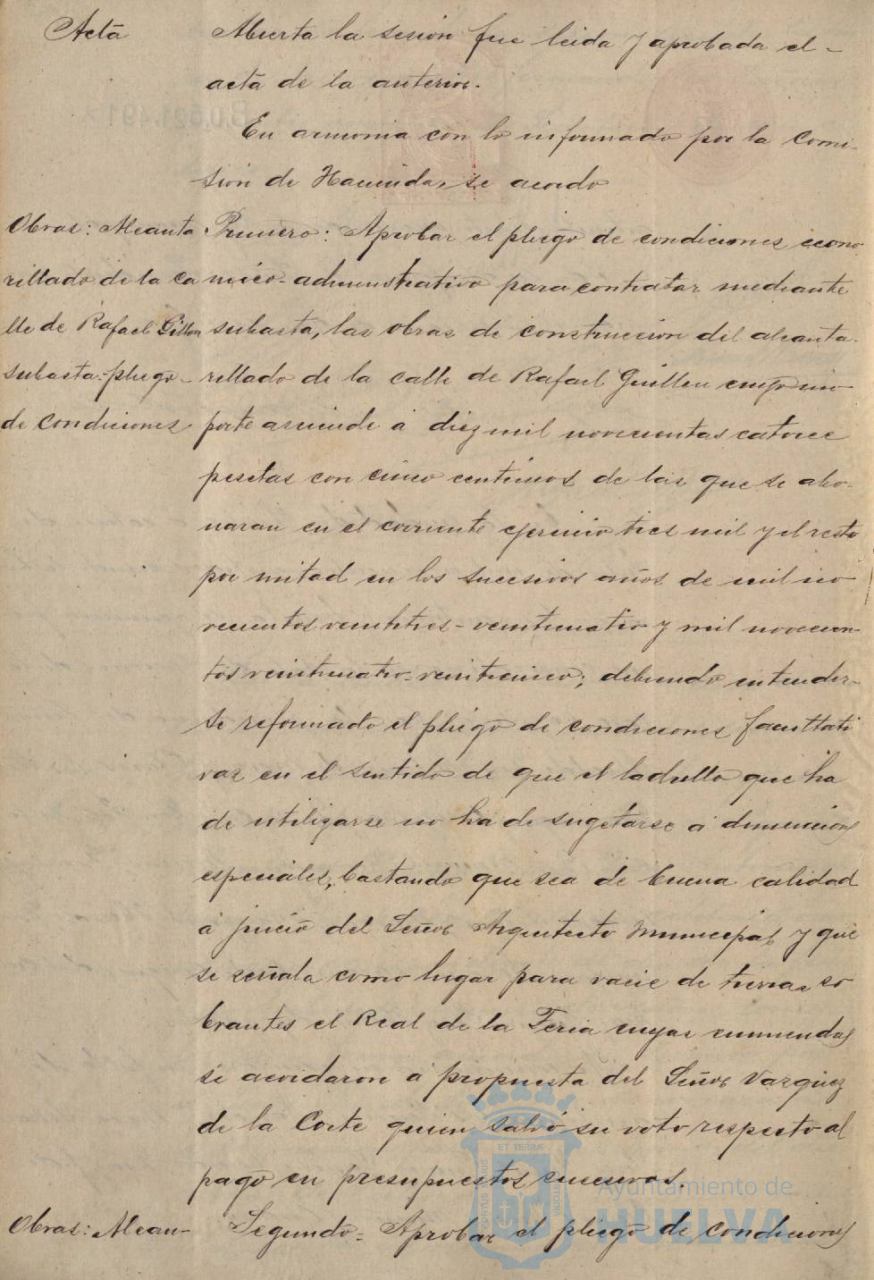 Acta
Abierta la sesión fue leida y aprobada el
acta de la anterior.
En armonia con lo informado por la Comi-
sión de Hacienda, se acordo
Obras: Alcanta
rillado de la ca
lle de Rafael Guillen
subasta-pliego
de condiciones
Primero: Aprobar el pliego de condiciones econo
mico-administrativo para contratar mediante
subasta, las obras de construccion del alcanta-
rillado de la calle de Rafael Guillen cuyo im
porte asciende á diez mil novecientas catorce
pesetas con cinco centimos de las que se abo-
naran en el corriente ejercicio tres mil y el resto
por mitad en los sucesivos años de mil no
vecientos veintitres-veinticuatro y mil novecien
tos veinticuatro-veinticinco; debiendo entender-
se reformado el pliego de condiciones facultati
vas en el sentido de que el ladrillo que ha
de utilizarse no ha de sugetarse á dimensiones
especiales, bastando que sea de buena calidad
á juicio del Señor Arquitecto Municipal y que
se señala como lugar para vacie de tierras so
brantes el Real de la Feria cuyas enmiendas
se acordaron á propuesta del Señor Vazquez
de la Corte quien salvó su voto respecto al
pago en presupuestos sucesivos.
Obras: Alcan-
Segundo- Aprobar el pliego de condiciones
Ayuntamiento de
HUELVA